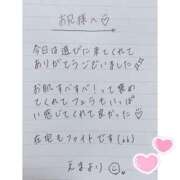 お兄様へ♡
今日は遊びに来てくれて
ありがとうございました
お肌すべすべ！って褒め
てくれてフェラもいっぱ
い感じてくれて良かった♡
在宅もファイトです(ﾟﾛﾟ)
えまより☺